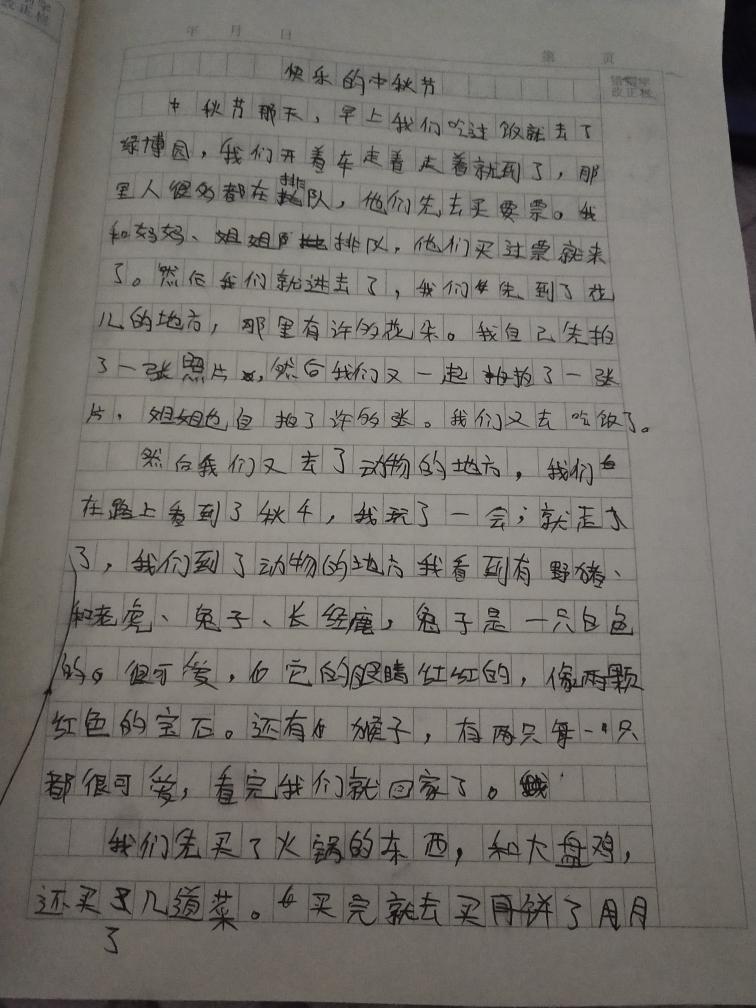 年 月 日
第 页
错别字
改正栏
快乐的中秋节
中秋节那天，早上我们吃过饭就去了
绿博园，我们开着车走着走着就到了，那
里人很多都在排队，他们先去买票。我
和妈妈、姐姐排队，他们买过票就来
了。然后我们就进去了，我们先到了花
儿的地方，那里有许多花朵。我自己先拍
了一张照片，然后我们又一起拍了一张
片，姐姐也自拍了许多张。我们又去吃饭了。
然后我们又去了动物的地方，我们
在路上看到了秋千，我玩了一会；就走
了，我们到了动物的地方我看到有野猪、
和老虎、兔子、长经鹿，兔子是一只白色
的。很可爱，它的眼睛红红的，像两颗
红色的宝石。还有猴子，有两只每一只
都很可爱，看完我们就回家了。
我们先买了火锅的东西，和大盘鸡，
还买了几道菜。买完就去买了月月